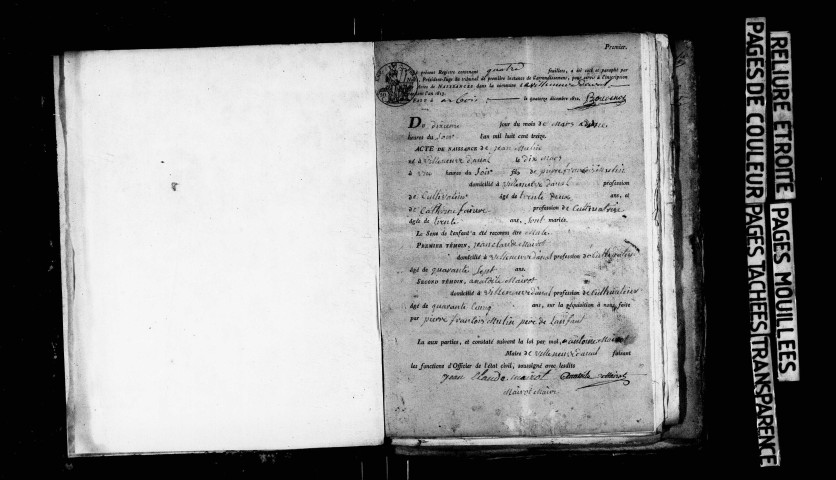 Premier.
Le présent Registre contenant quatre feuillets, a été coté et paraphé par
Président-Juge du tribunal de première instance de l'arrondissement, pour servir à l'inscription
des actes de NAISSANCES dans la commune de villeneuve d'aval
pendant l'an 1813.
Fait à arbois le quatorze décembre 1812.
Du dixieme jour du mois de Mars
heures du Soir l'an mil huit cent treize.
ACTE DE NAISSANCE de Jean Mulin
né à villeneuve d'aval le dix Mars
à une heures du Soir fils de pierre françois Mulin
domicilié à villeneuve d'aval profession
de Cultivateur âgé de trente deux ans, et
de Catherine profession de Cultivatrice
âgée de trente ans, sont mariés.
Le Sexe de l'enfant a été reconnu être Male.
PREMIER TÉMOIN, jean claude Mairot
domicilié à villeneuve d'aval profession de Cultivateur
âgé de quarante Sept ans.
SECOND TÉMOIN, anatoile Mairot
domicilié à villeneuve d'aval profession de Cultivateur
âgé de quarante Cinq ans, sur la réquisition à nous faite
par pierre françois Mulin pere de l'enfant
Lu aux parties, et constaté suivant la loi par moi, antoine Mairot
Maire de villeneuve d'aval faisant
les fonctions d'Officier de l'état civil, soussigné avec lesdits
jean Claude mairot Anatoile Mairot
Mairot Maire
RELIURE ETROITE PAGES MOUILLEES
PAGES DE COULEUR PAGES TACHEES TRANSPARENCE